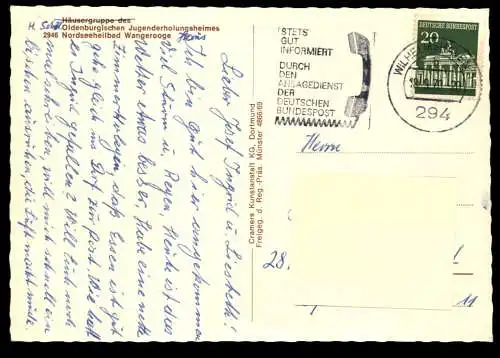 Häusergruppe des
Oldenburgischen Jugenderholungsheimes
2946 Nordseeheilbad Wangerooge
Lieber Josef, Ingrid u. Liesbeth!
Ich bin gut hier angekommen
viel Sturm u. Regen, Heute ist das
Wetter etwas besser, habe eine nette
Zimmerkollegin, das Essen ist gut
gehe gleich ins Dorf zur Post. Wie hat
es Ingrid gefallen? Will Euch noch
mal schreiben, will mich schnell ein
bisschen ausruhen, die Luft macht müde.
Cramers Kunstanstalt KG, Dortmund
Freigeg. d. Reg.-Präs. Münster 4866/69
STETS
GUT
INFORMIERT
DURCH
DEN
ANSAGEDIENST
DER
DEUTSCHEN
BUNDESPOST
DEUTSCHE BUNDESPOST
20
294
Herrn
28.
11